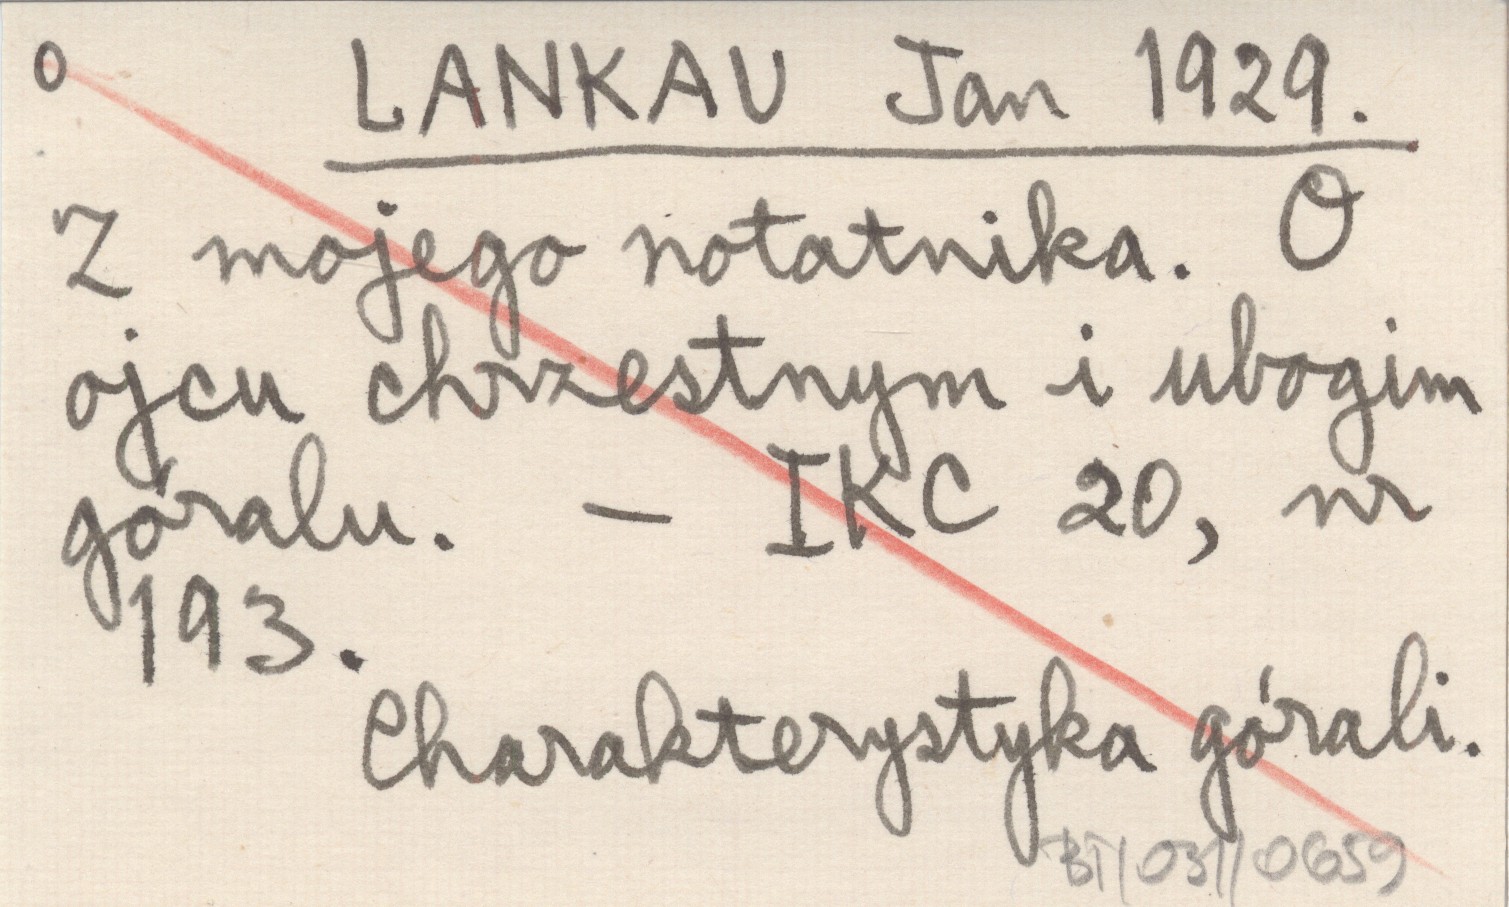 o LANKAU Jan 1929.
Z mojego notatnika. O
ojcu chrzestnym i ubogim
góralu. — IKC 20, nr
193.
Charakterystyka górali.
BT/031/0659